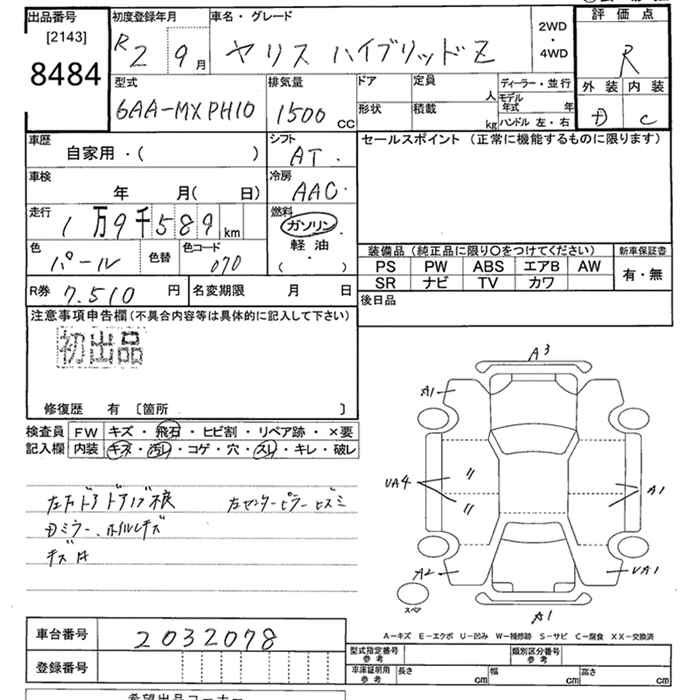 出品番号
[2143]
8484
初度登録年月
R2 9月
車名・グレード
ヤリス ハイブリッドZ
2WD
・
4WD
評価点
R
外装 内装
D C
型式
6AA-MXPH10
排気量
1500 CC
ドア
定員
人
形状
積載
kg
ディーラー・並行
モデル年式 年
ハンドル 左・右
車歴
自家用・( )
シフト
AT
セールスポイント (正常に機能するものに限ります)
車検
年 月( 日)
冷房
AAC
走行
1万9千589km
燃料
ガソリン
軽油
( ・ )
色
パール
色替
色コード
070
装備品 (純正品に限り○をつけてください)
新車保証書
PS PW ABS エアB AW
SR ナビ TV カワ
有・無
R券 7.510 円
名変期限 月 日
後日品
注意事項申告欄(不具合内容等は具体的に記入して下さい)
初出品
修復歴 有 〔箇所 〕
検査員記入欄
FW キズ・飛石・ヒビ割・リペア跡・×要
内装 キズ・汚レ・コゲ・穴・スレ・キレ・破レ
左センターピラーヒズミ
キズ
A3
A1
UA4
A1
A2
UA1
A1
スペア
A-キズ E-エクボ U-凹み W-補修跡 S-サビ C-腐食 XX-交換済
車台番号
2032078
型式指定番号
参考
類別区分番号
参考
登録番号
車庫証明用
参考
長さ cm
幅 cm
高さ cm
希望出品コーナー